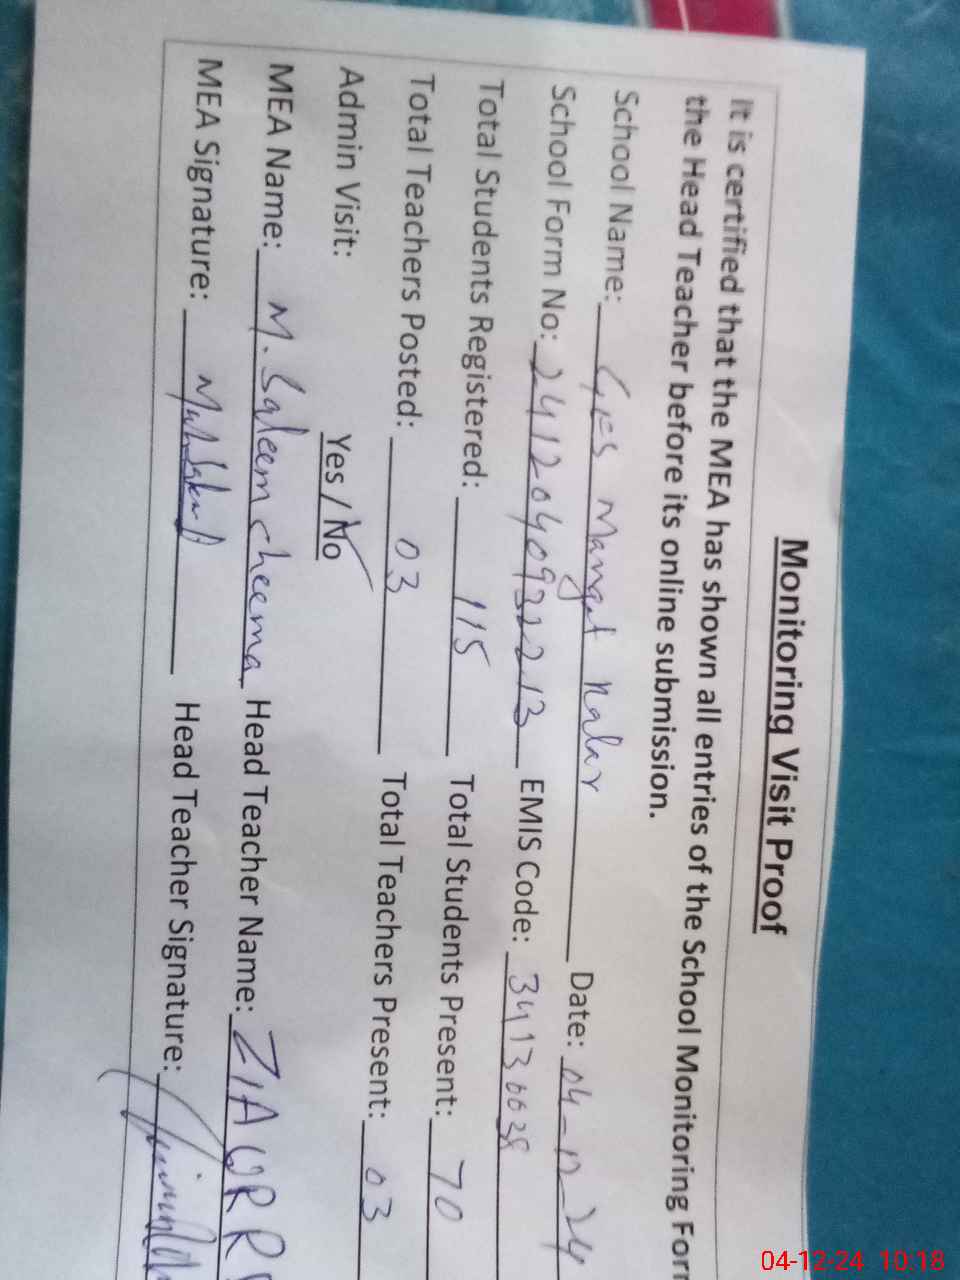 Monitoring Visit Proof
It is certified that the MEA has shown all entries of the School Monitoring Form
the Head Teacher before its online submission.
School Name: GES Mangat Kalar Date: 04-12-24
School Form No: 2412040932213 EMIS Code: 34130038
Total Students Registered: 115 Total Students Present: 70
Total Teachers Posted: 03 Total Teachers Present: 03
Admin Visit: Yes / No
MEA Name: M. Saleem cheema Head Teacher Name: ZIA UR R
MEA Signature: Head Teacher Signature:
04-12-24 10:18